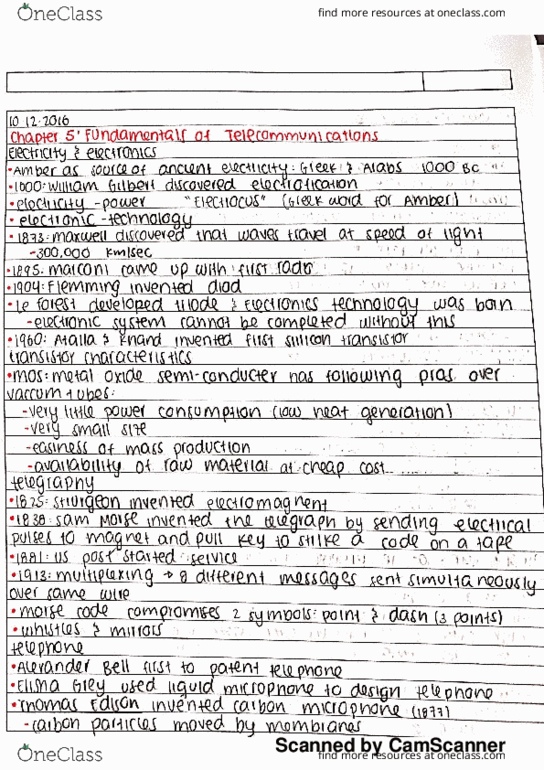 OneClass
find more resources at oneclass.com
10 12·2016
Chapter 5: Fundamentals of Telecommunications
Electricity & electronics
•Amber as source of ancient electricity: Greek & Arabs 1000 BC
•1600: William Gilbert discovered electrification
•electricity -power "Electrocus" (Greek word for Amber)
•electronic -technology
•1873: maxwell discovered that waves travel at speed of light
-300,000 km/sec
•1895: marconi came up with first radio
•1904: Flemming invented diod
•Le forest developed triode & electronics technology was born
-electronic system cannot be completed without this
•1960: Atalla & Khand invented first silicon transistor
transistor characteristics
•mos: metal oxide semi-conducter has following pros over
vaccum tubes:
-very little power consumption (low heat generation)
-very small size
-easiness of mass production
-availability of raw material at cheap cost
telegraphy
•1825: sturgeon invented electromagnent
•1838: sam morse invented the telegraph by sending electrical
pulses to magnet and pull key to strike a code on a tape
•1881: US post started service
•1913: multiplexing → 8 different messages sent simultaneously
over same wire
•morse code compromises 2 symbols: point & dash (3 points)
•whistles & mirrors
telephone
•Alexander Bell first to patent telephone
•Elisha Grey used liquid microphone to design telephone
•Thomas Edison invented carbon microphone (1877)
-carbon particles moved by membranes
Scanned by CamScanner
OneClass
find more resources at oneclass.com